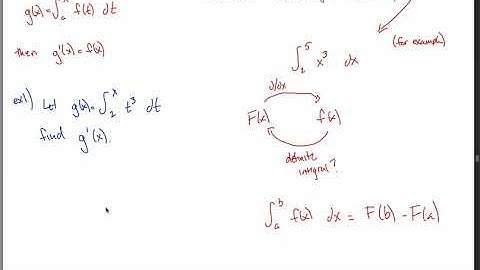 g(x)=∫ₐˣ f(t) dt
then g'(x)=f(x)
ex1) Let g(x)=∫₂ˣ t³ dt
find g'(x).
(for example)
∫₂⁵ x³ dx
d/dx
F(x) f(x)
definite
integral?
∫ₐᵇ f(x) dx = F(b)-F(a)